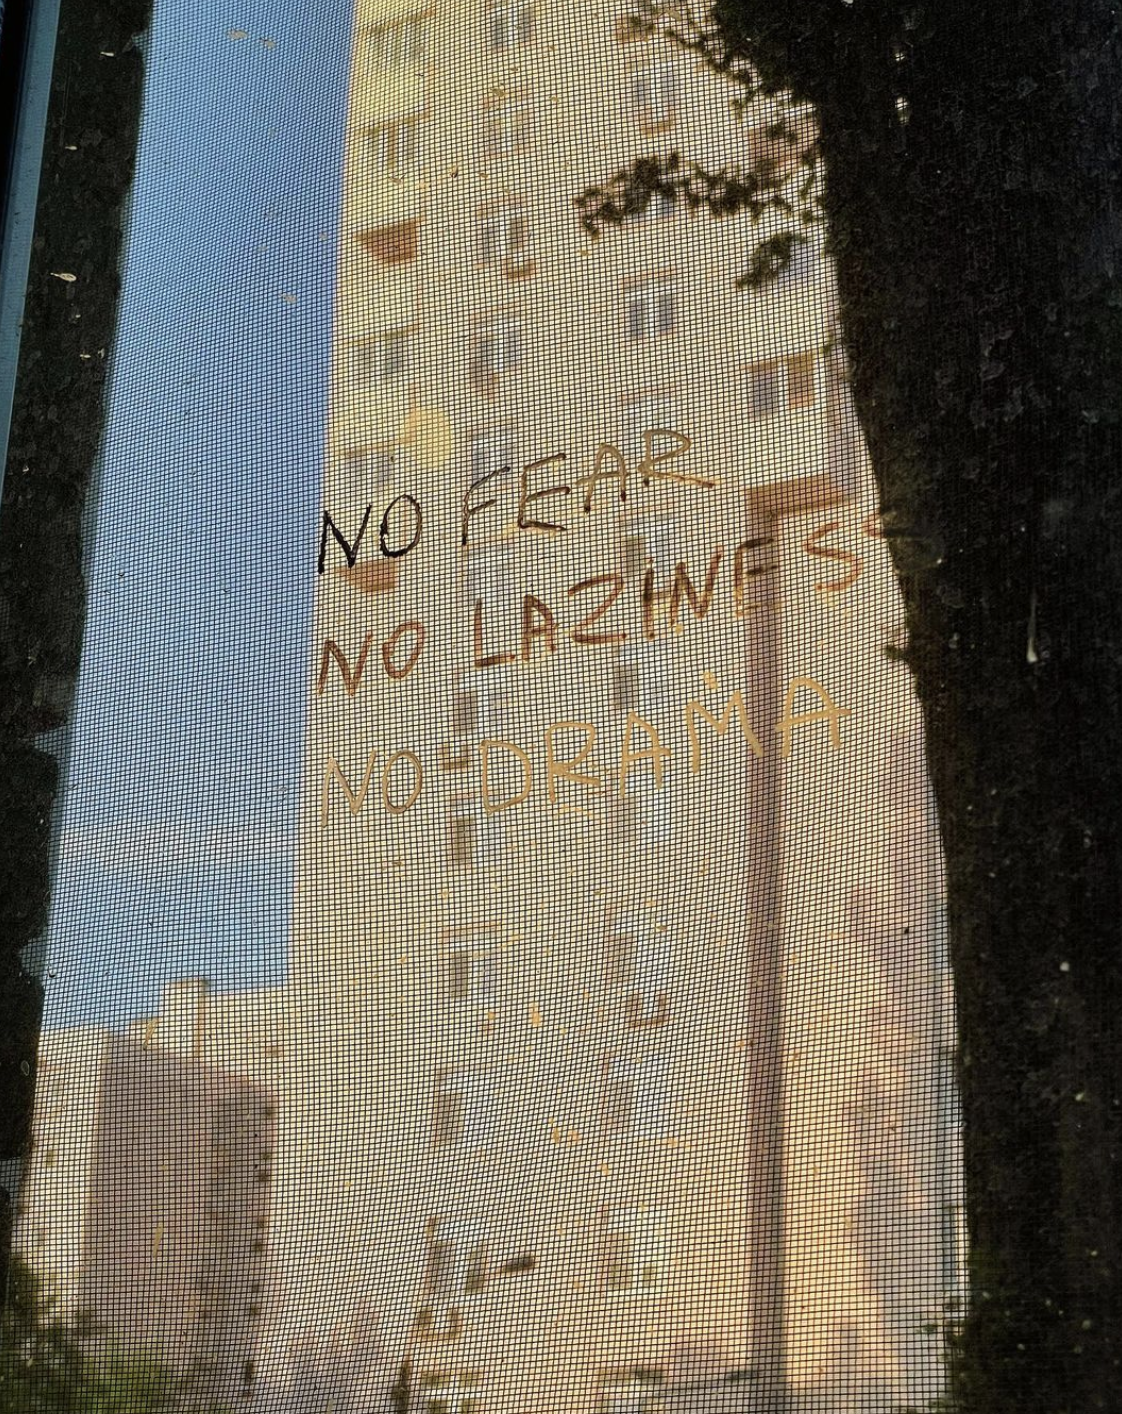 NO FEAR
NO LAZINESS
NO DRAMA